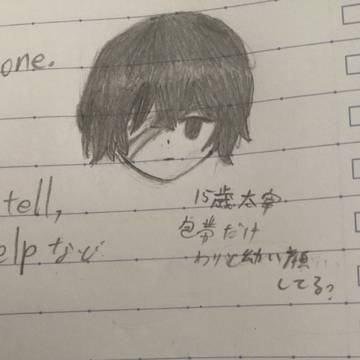 one.
tell,
elp など
15歳太宰
包帯だけ
わりと幼い顔
してる?